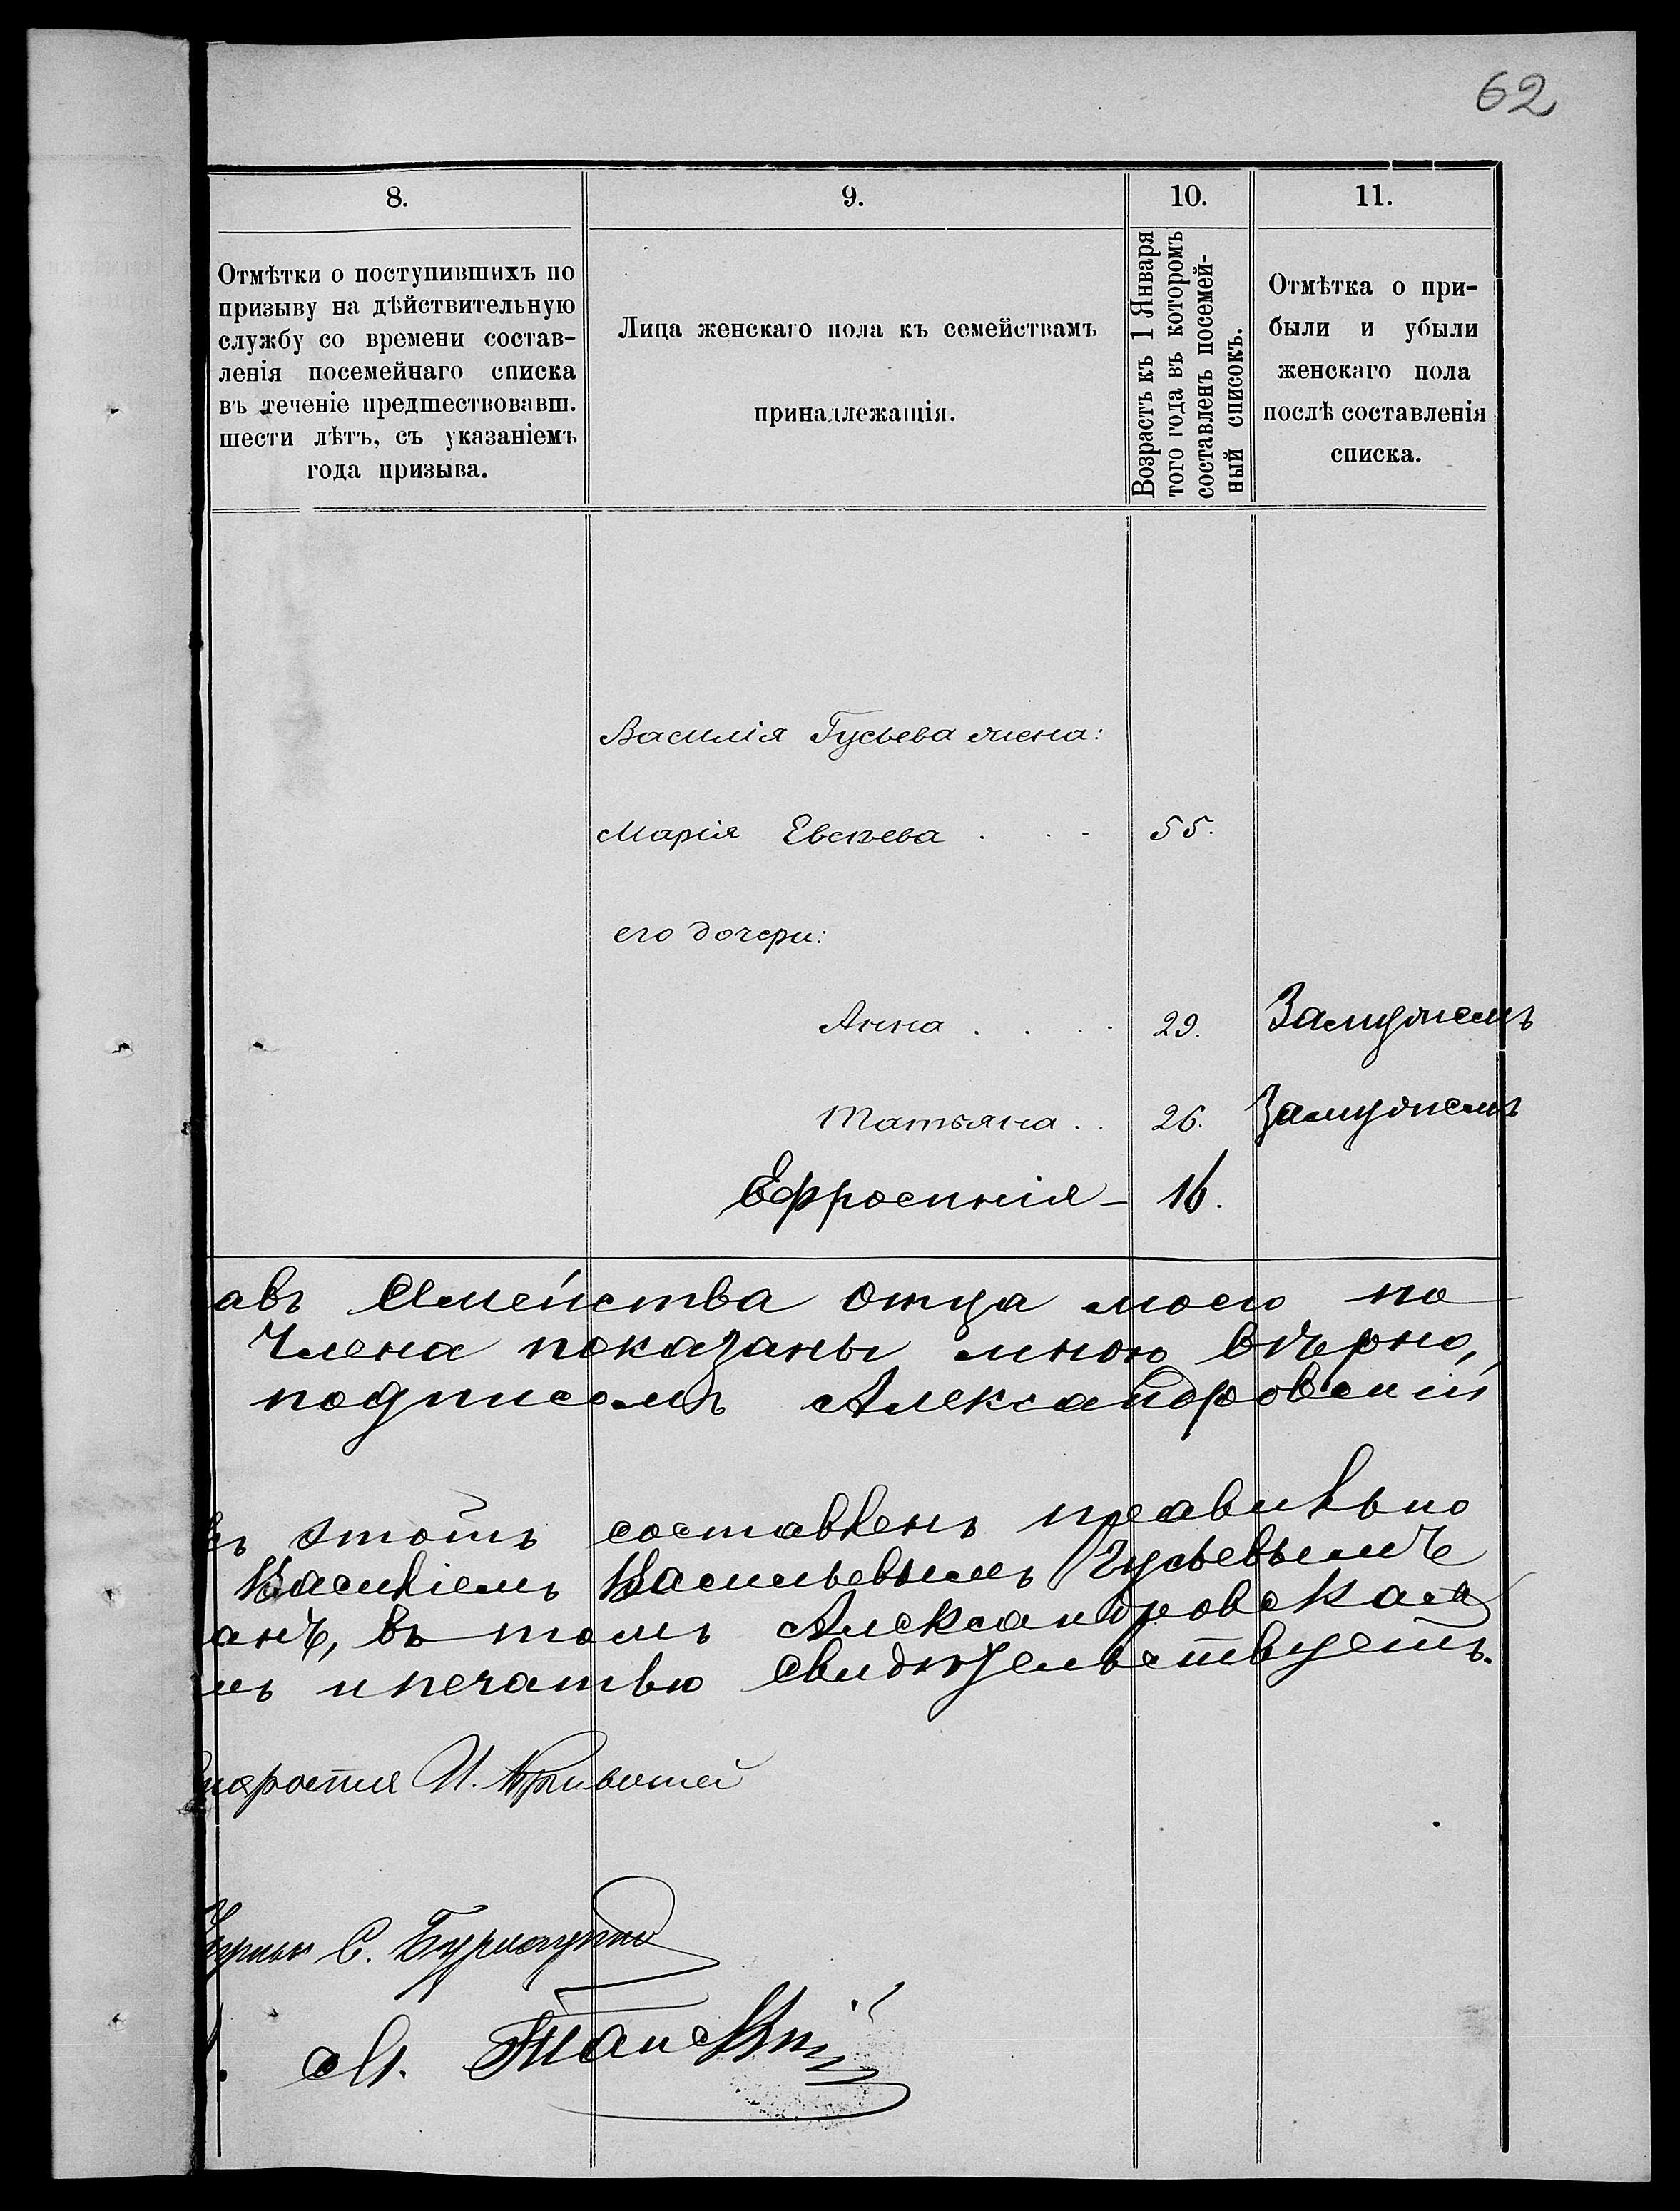 62
8.
9.
10.
11.
Отмѣтки о поступившихъ по
призыву на дѣйствительную
службу со времени состав-
ленія посемейнаго списка
въ теченіе предшествовавш.
шести лѣтъ, съ указаніемъ
года призыва.
Лица женскаго пола къ семействамъ
принадлежащія.
Возрастъ къ 1 Января
того года въ которомъ
составленъ посемей-
ный списокъ.
Отмѣтка о при-
были и убыли
женскаго пола
послѣ составленія
списка.
Василія Гусьева жена:
Марія Евсѣева . . . 55.
его дочери:
Анна . . . . 29. Замужемъ
Татьяна . . 26. Замужемъ
Ефросинія - 16.
авъ Семейства отца моего по
члена показаны мною вѣрно,
подписомъ Александровскій
ъ этотъ составленъ правильно
Василіемъ Васильевымъ Гусьевымъ
анѣ, въ томъ Александровская
мъ и печатью свидѣтельствуетъ.
И.
С.